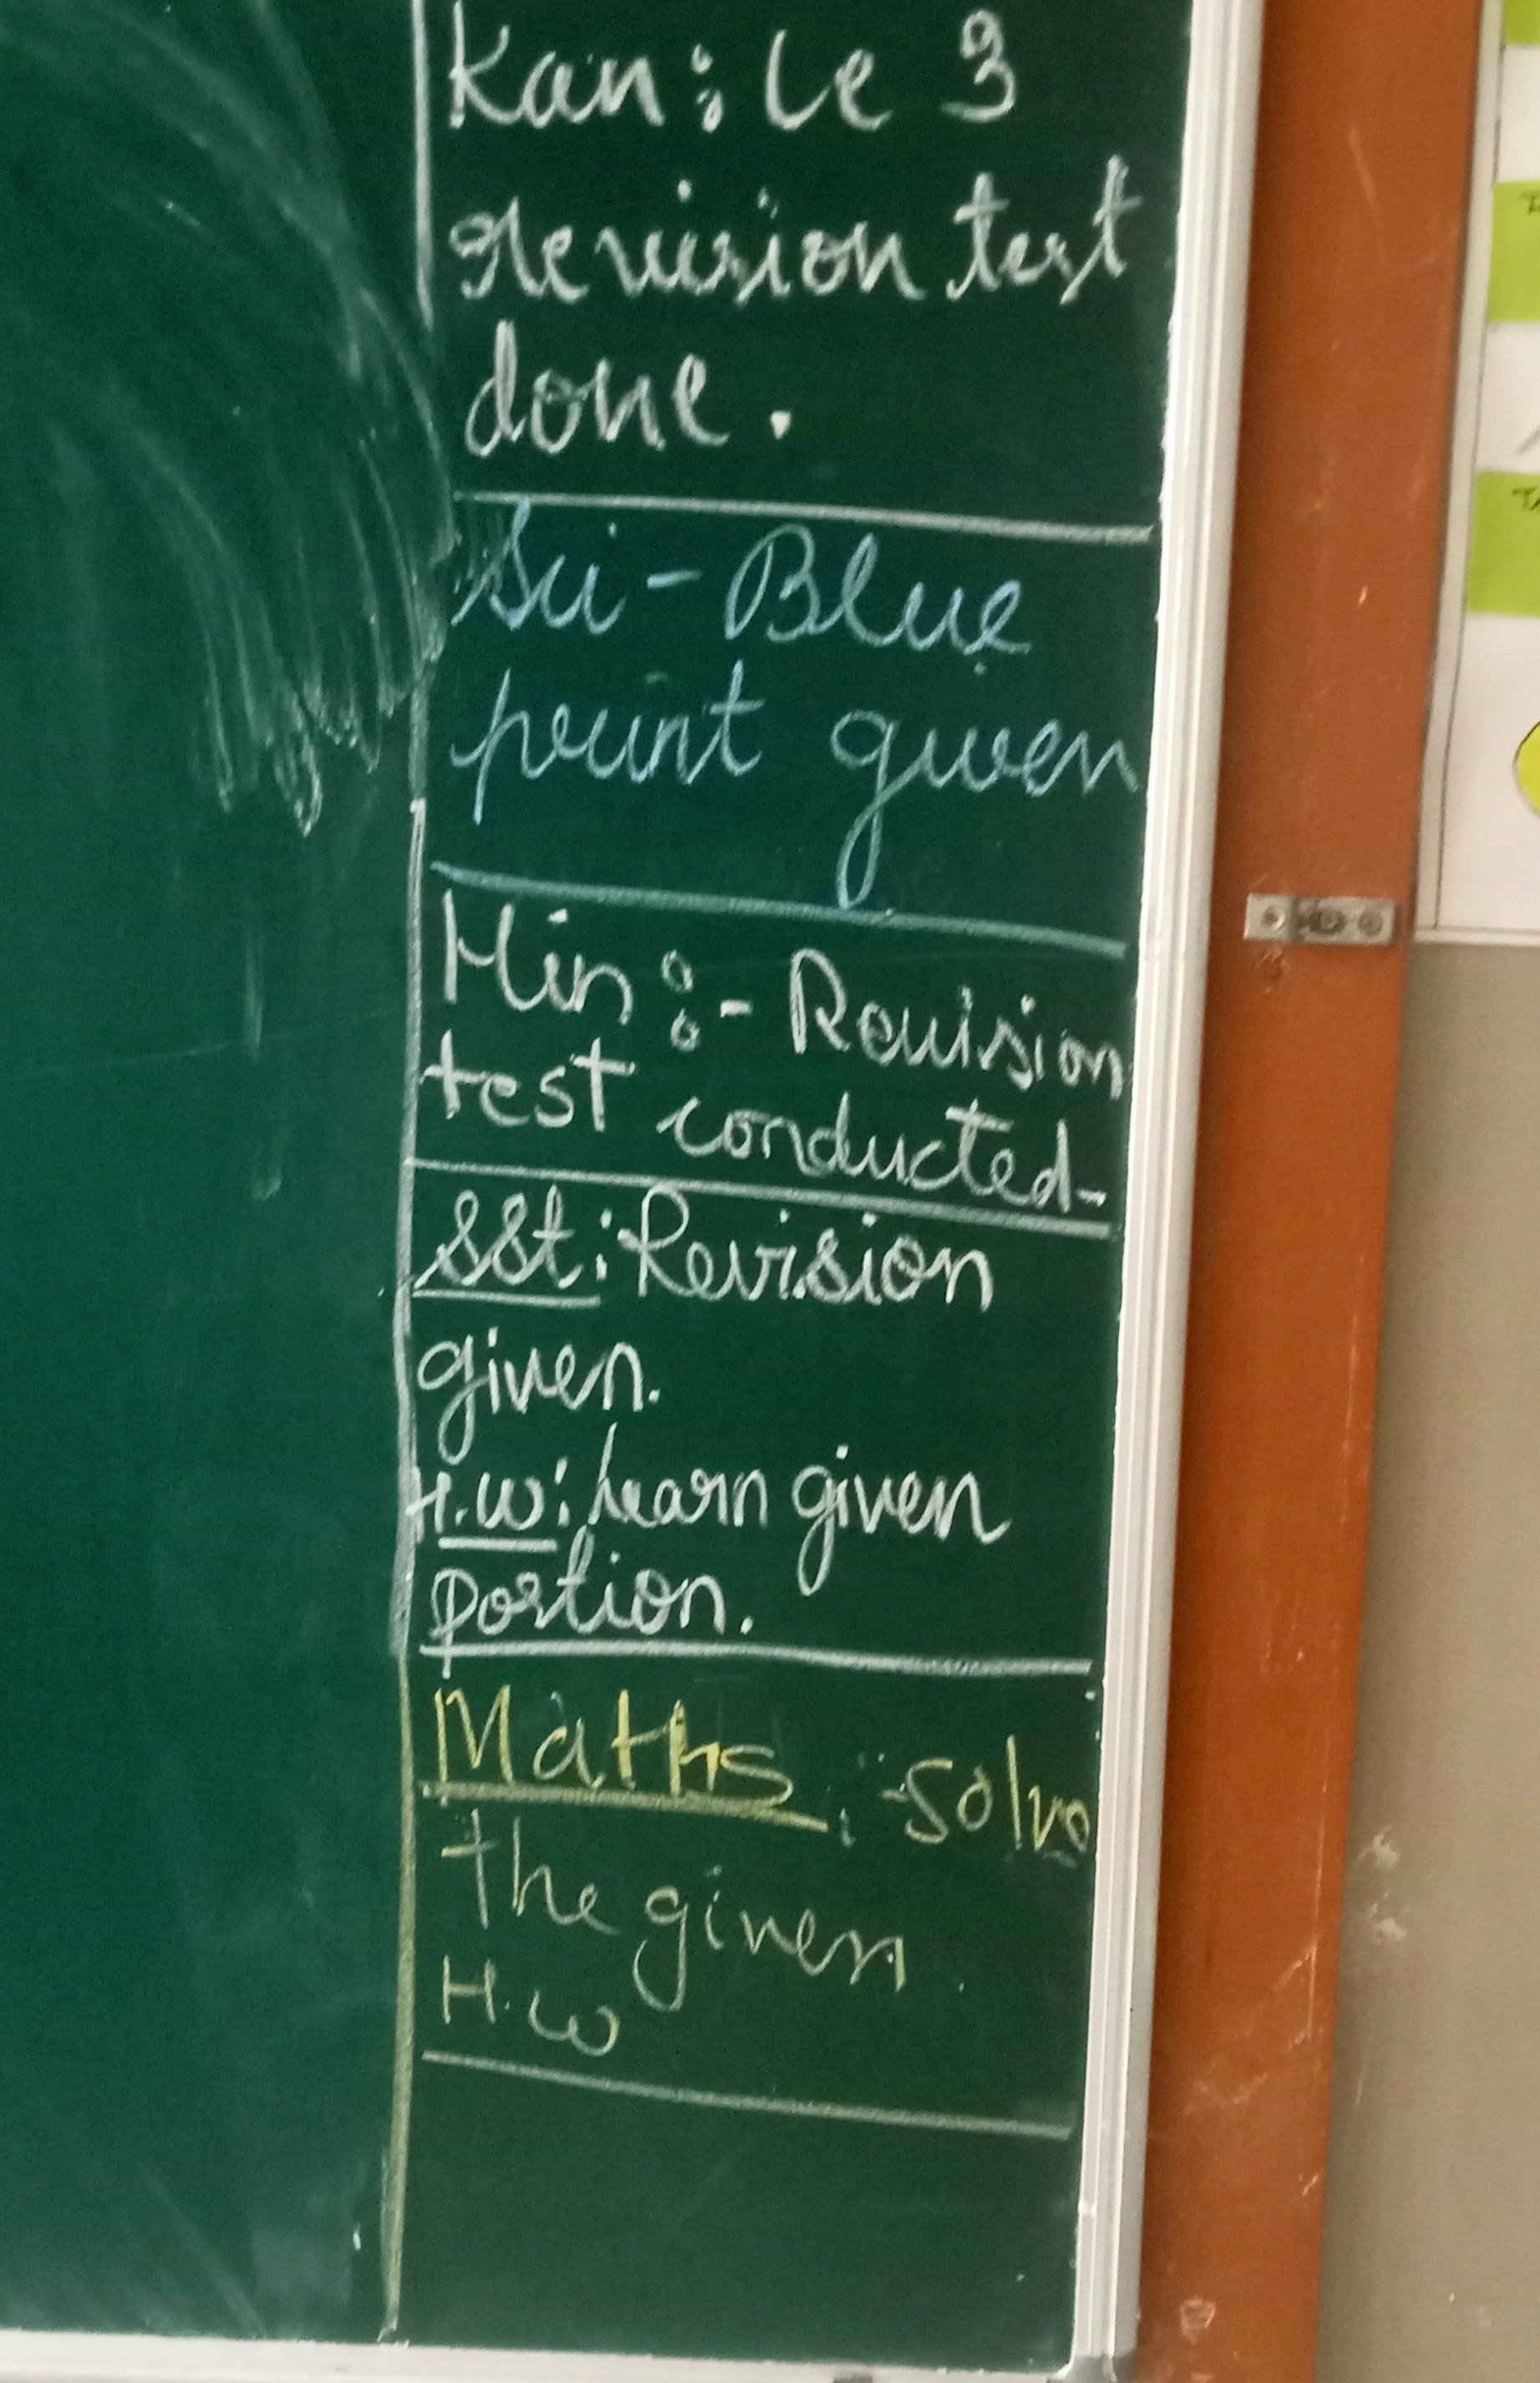 Kan: Le 3
revision test
done.
Sci - Blue
print given
Hin :- Revision
test conducted-
SSt: Revision
given.
H.W: Learn given
portion.
Maths : - Solve
The given
H.W